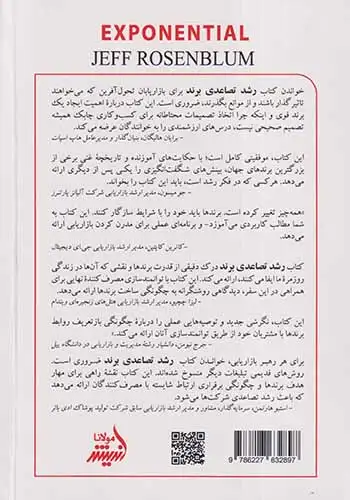 EXPONENTIAL
JEFF ROSENBLUM
خواندن کتاب رشد تصاعدی برند برای بازاریابان تحول‌آفرین که می‌خواهند
تاثیرگذار باشند و از موانع بگذرند، ضروری است. این کتاب دربارهٔ اهمیت ایجاد یک
برند قوی و اینکه چرا اتخاذ تصمیمات محتاطانه برای کسب‌وکاری چابک همیشه
تصمیم صحیحی نیست، درس‌های ارزشمندی را به خوانندگان عرضه می‌کند.
- برایان هالیگان، بنیان‌گذار و مدیرعامل هاب اسپات
این کتاب، موفقیتی کامل است؛ با حکایت‌های آموزنده و تاریخچهٔ غنی برخی از
بزرگترین برندهای جهان، بینش‌های شگفت‌انگیزی را یکی پس از دیگری ارائه
می‌دهد. هرکسی که در فکر رشد است، باید این کتاب را بخواند.
- جو میسون، مدیر ارشد بازاریابی شرکت آلیانز پارتنرز
«همه‌چیز تغییر کرده است. برندها باید خود را با شرایط سازگار کنند. این کتاب به
شما مطالب کاربردی می‌آموزد- و برنامه‌ای عملی برای مدرن کردن بازاریابی ارائه
می‌دهد.
-کاترین کاپلین، مدیر ارشد بازاریابی جی‌ای دیجیتال
کتاب رشد تصاعدی برند درک دقیقی از قدرت برندها و نقشی که آن‌ها در زندگی
روزمرهٔ ما ایفا می‌کنند، ارائه می‌کند. این کتاب با توانمندسازی مصرف‌کنندهٔ نهایی برای
همراهی در این سفر، دیدگاهی روشنگرانه به چگونگی ساخت برندها ارائه می‌دهد.
- لیزا چچیو، مدیر ارشد بازاریابی هتل‌های زنجیره‌ای ویندام
این کتاب، نگرشی جدید و توصیه‌هایی عملی را دربارهٔ چگونگی بازتعریف روابط
برندها با مشتریان خود از طریق توانمندسازی آنان ارائه می‌کند.»
- جرج نیومن، دانشیار رشتهٔ مدیریت و بازاریابی در دانشگاه ییل
برای هر رهبر بازاریابی، خواندن کتاب رشد تصاعدی برند ضروری است.
روش‌های قدیمی تبلیغات دیگر منسوخ شده‌اند. این کتاب نقشهٔ راهی برای مهار
هدف برندها و چگونگی برقراری ارتباط شایسته با مصرف‌کنندگان ارائه می‌دهد
که باعث رشد تصاعدی شرکت‌ها می‌شود.
- استیو هارتمن، سرمایه‌گذار، مشاور و مدیر ارشد بازاریابی سابق شرکت تولید پوشاک ادی بائر
مولانا
9 786227 832897